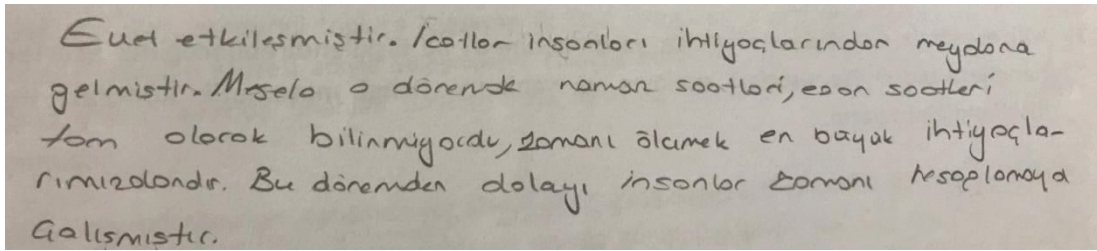 Evet etkileşmiştir. İcatlar insanları ihtiyaçlarından meydana
gelmiştir. Mesela o dönemde namaz saatleri, ezan saatleri
tam olarak bilinmiyordu, zamanı ölçmek en büyük ihtiyaçla-
rımızdandır. Bu dönemden dolayı insanlar zamanı hesaplamaya
çalışmıştır.